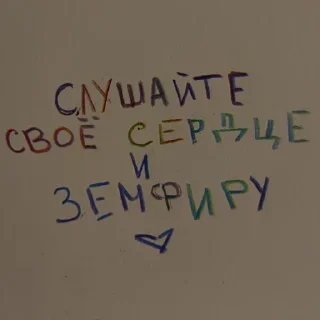 СЛУШАЙТЕ
СВОЁ СЕРДЦЕ
И
ЗЕМФИРУ